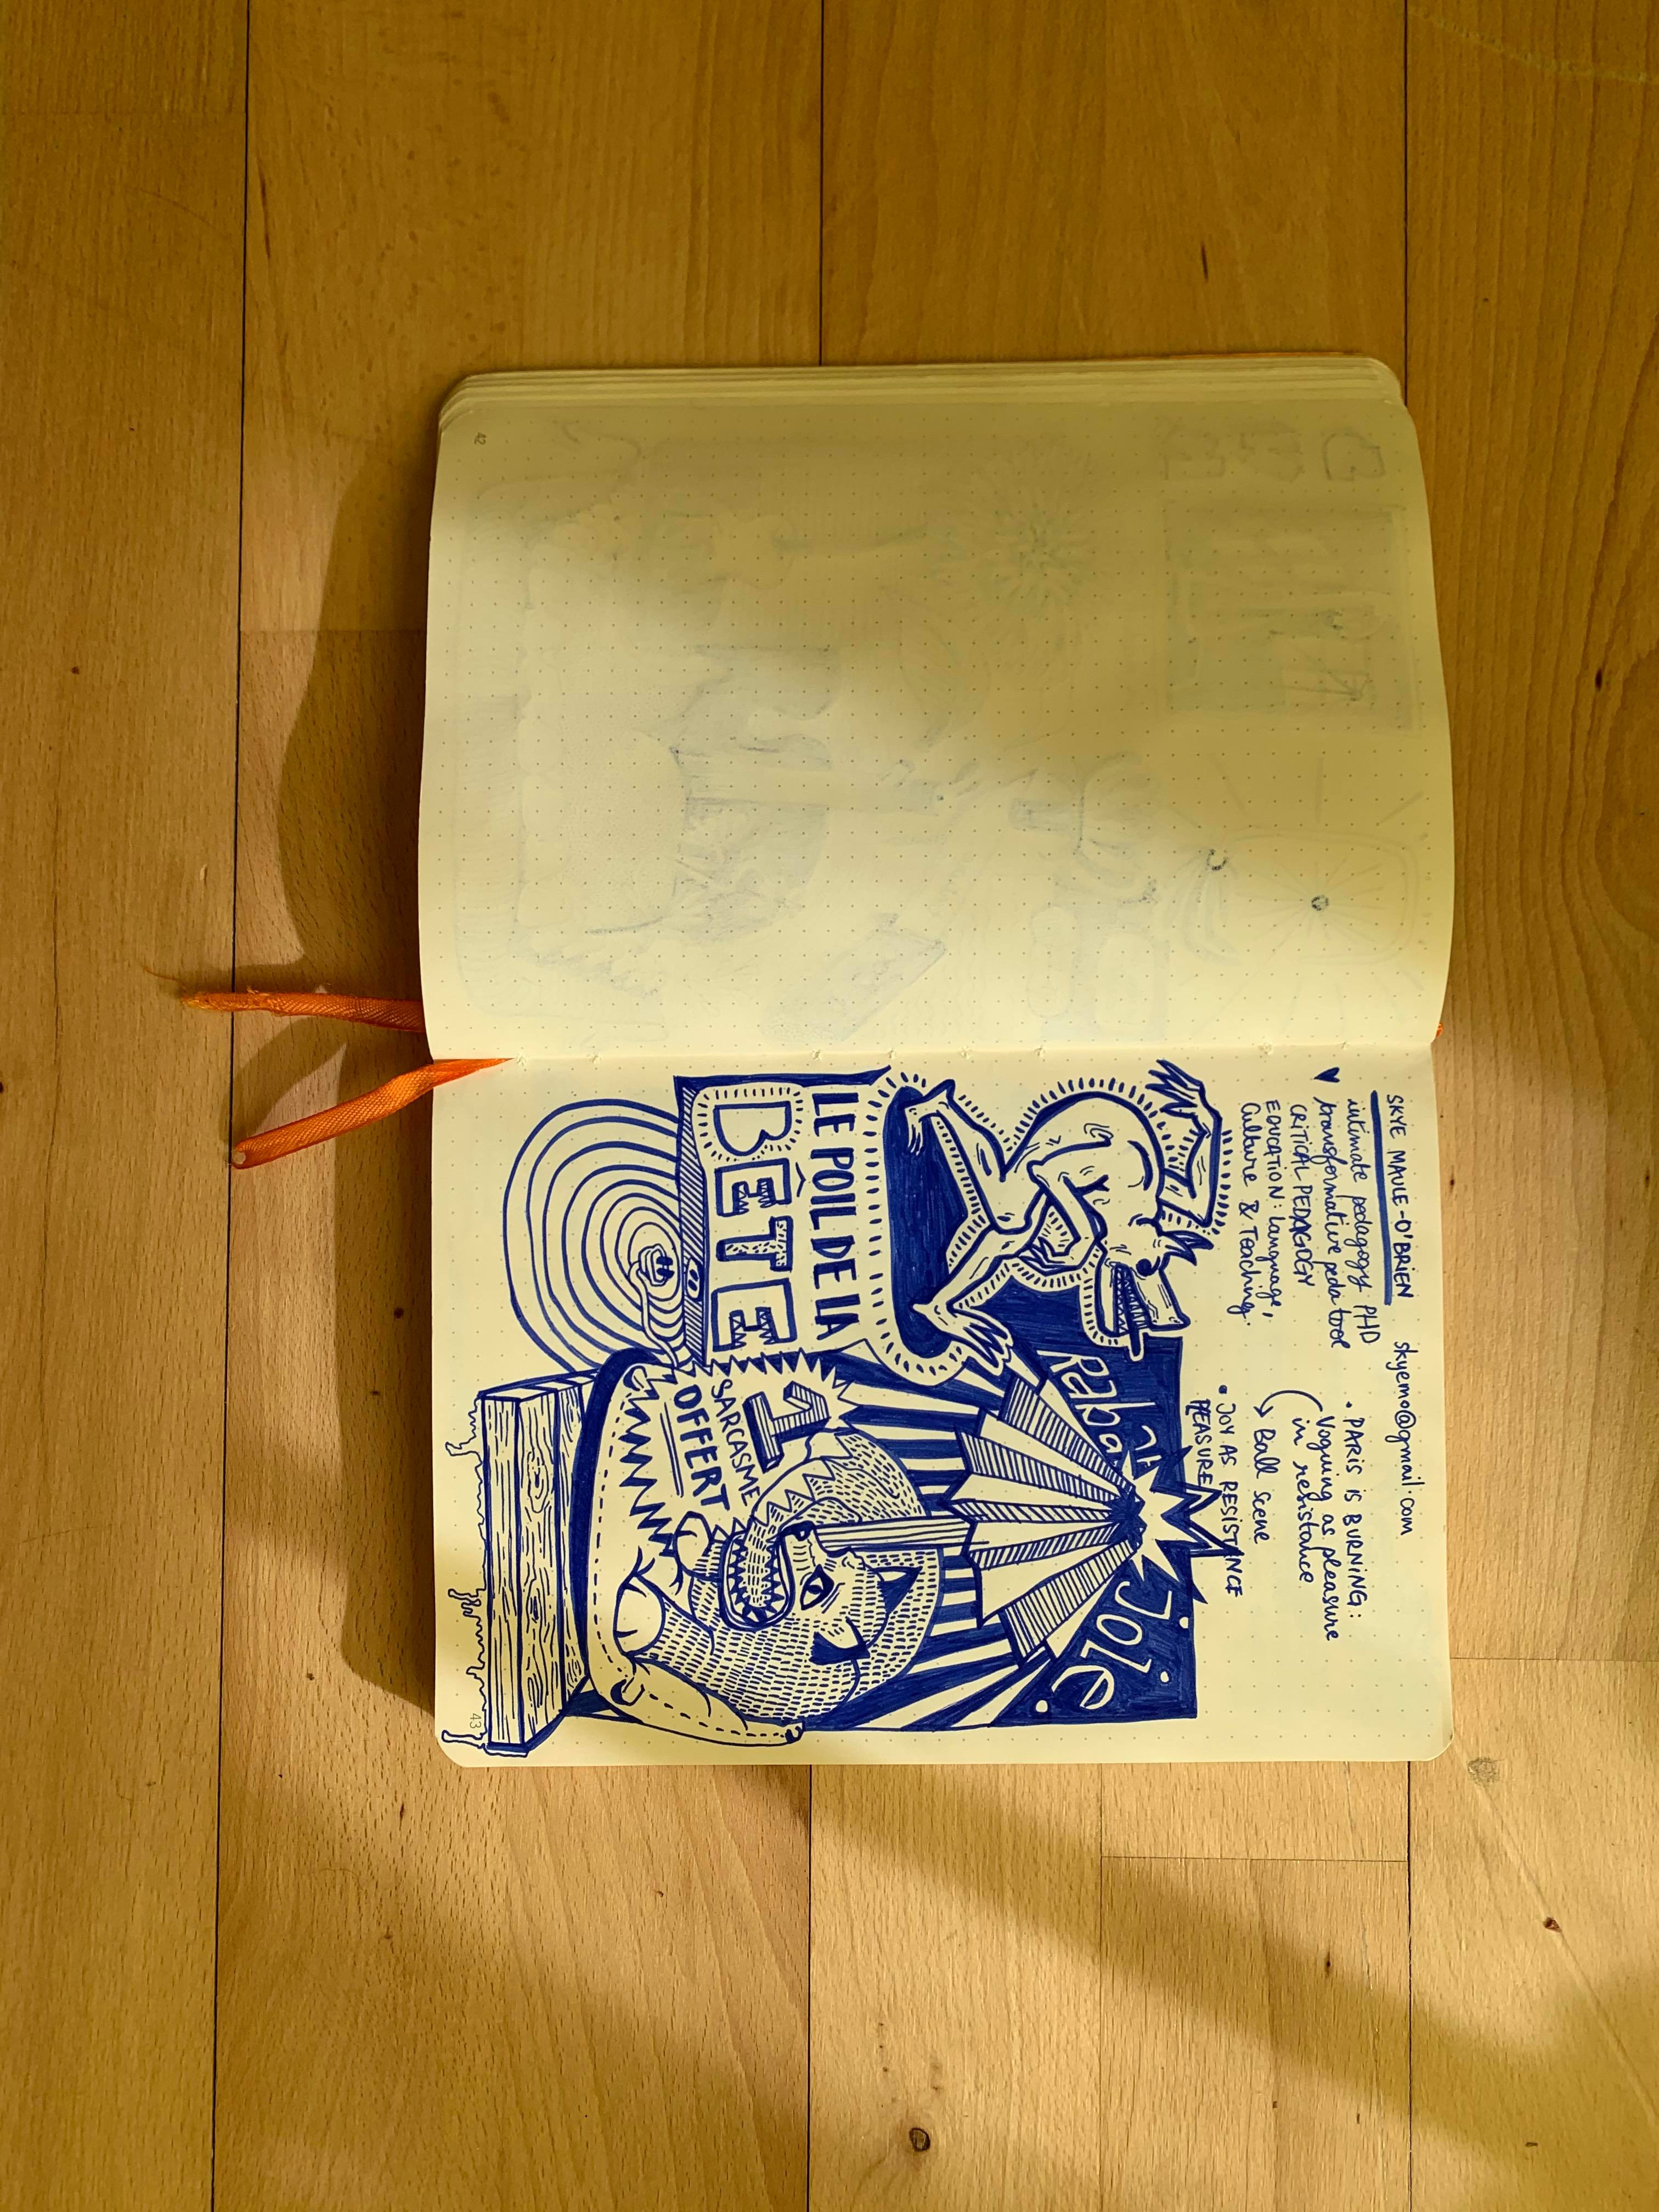 SKYE MAULE-O'BRIEN
skyemo@gmail.com
intimate pedagogy PHD
transformative peda tool
CRITICAL PEDAGOGY
EDUCATION: language,
Culture & Teaching.
• PARIS IS BURNING:
Voguing as pleasure
in resistance
→ Ball scene
• JOY AS RESISTANCE
PLEASURE
Rabat
Joie
LE POIL DE LA
BÊTE
1
SARCASME
OFFERT
42
43